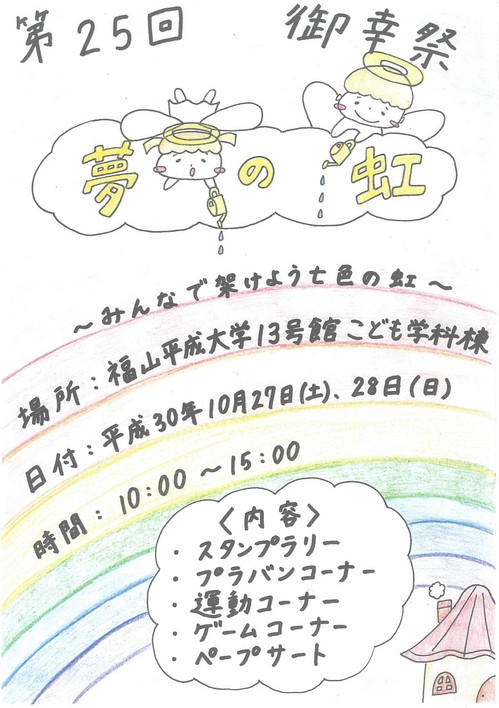 第25回 御幸祭
夢の虹
～みんなで架けよう七色の虹～
場所：福山平成大学13号館こども学科棟
日付：平成30年10月27日(土)、28日(日)
時間：10:00～15:00
〈内容〉
・スタンプラリー
・プラバンコーナー
・運動コーナー
・ゲームコーナー
・ペープサート